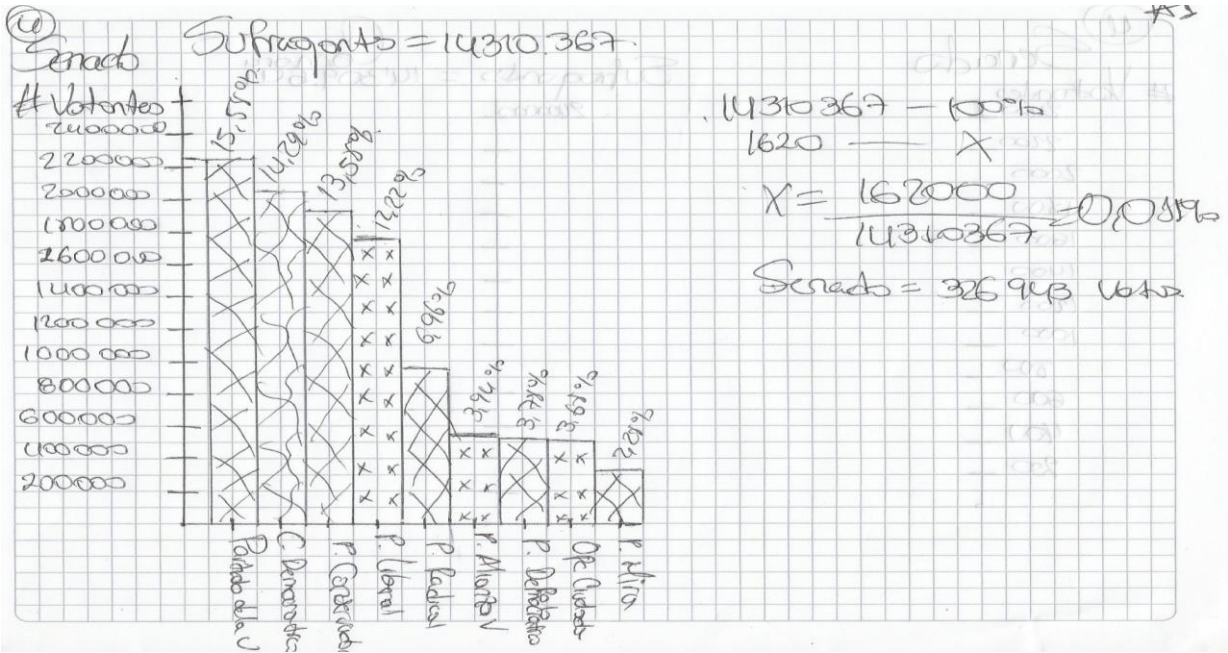 ④
Senado
Sufragantes = 14310.367.
# Votantes
2400000
2200000
2000000
1800000
1600000
1400000
1200000
1000000
800000
600000
400000
200000
15,58%
14,29%
13,58%
12,22%
6,96%
3,94%
3,78%
3,69%
2,28%
Partido de la U
C. Democratico
P. Conservador
P. Liberal
P. Radical
P. Alianza V
P. Democratico
Opc Ciudada
P. Mira
14310367 — 100%
1620 — X
X = 162000
14310367
= 0,011%
Senado = 326943 Votos.